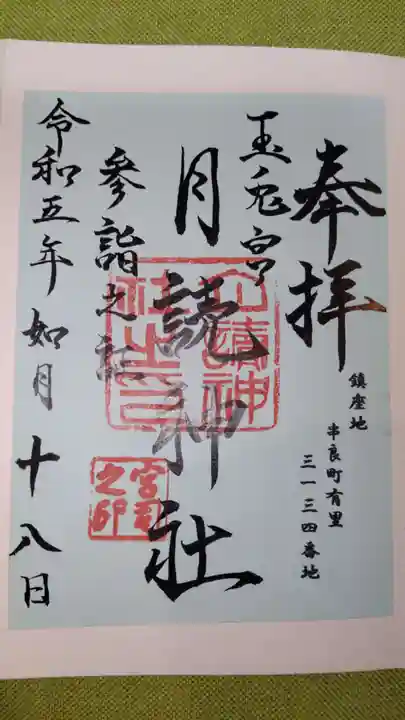 奉拝
鎮座地
串良町有里
三一三四番地
玉兎宮
月読神社
参詣之証
令和五年如月十八日
月讀神社之印
宮司之印